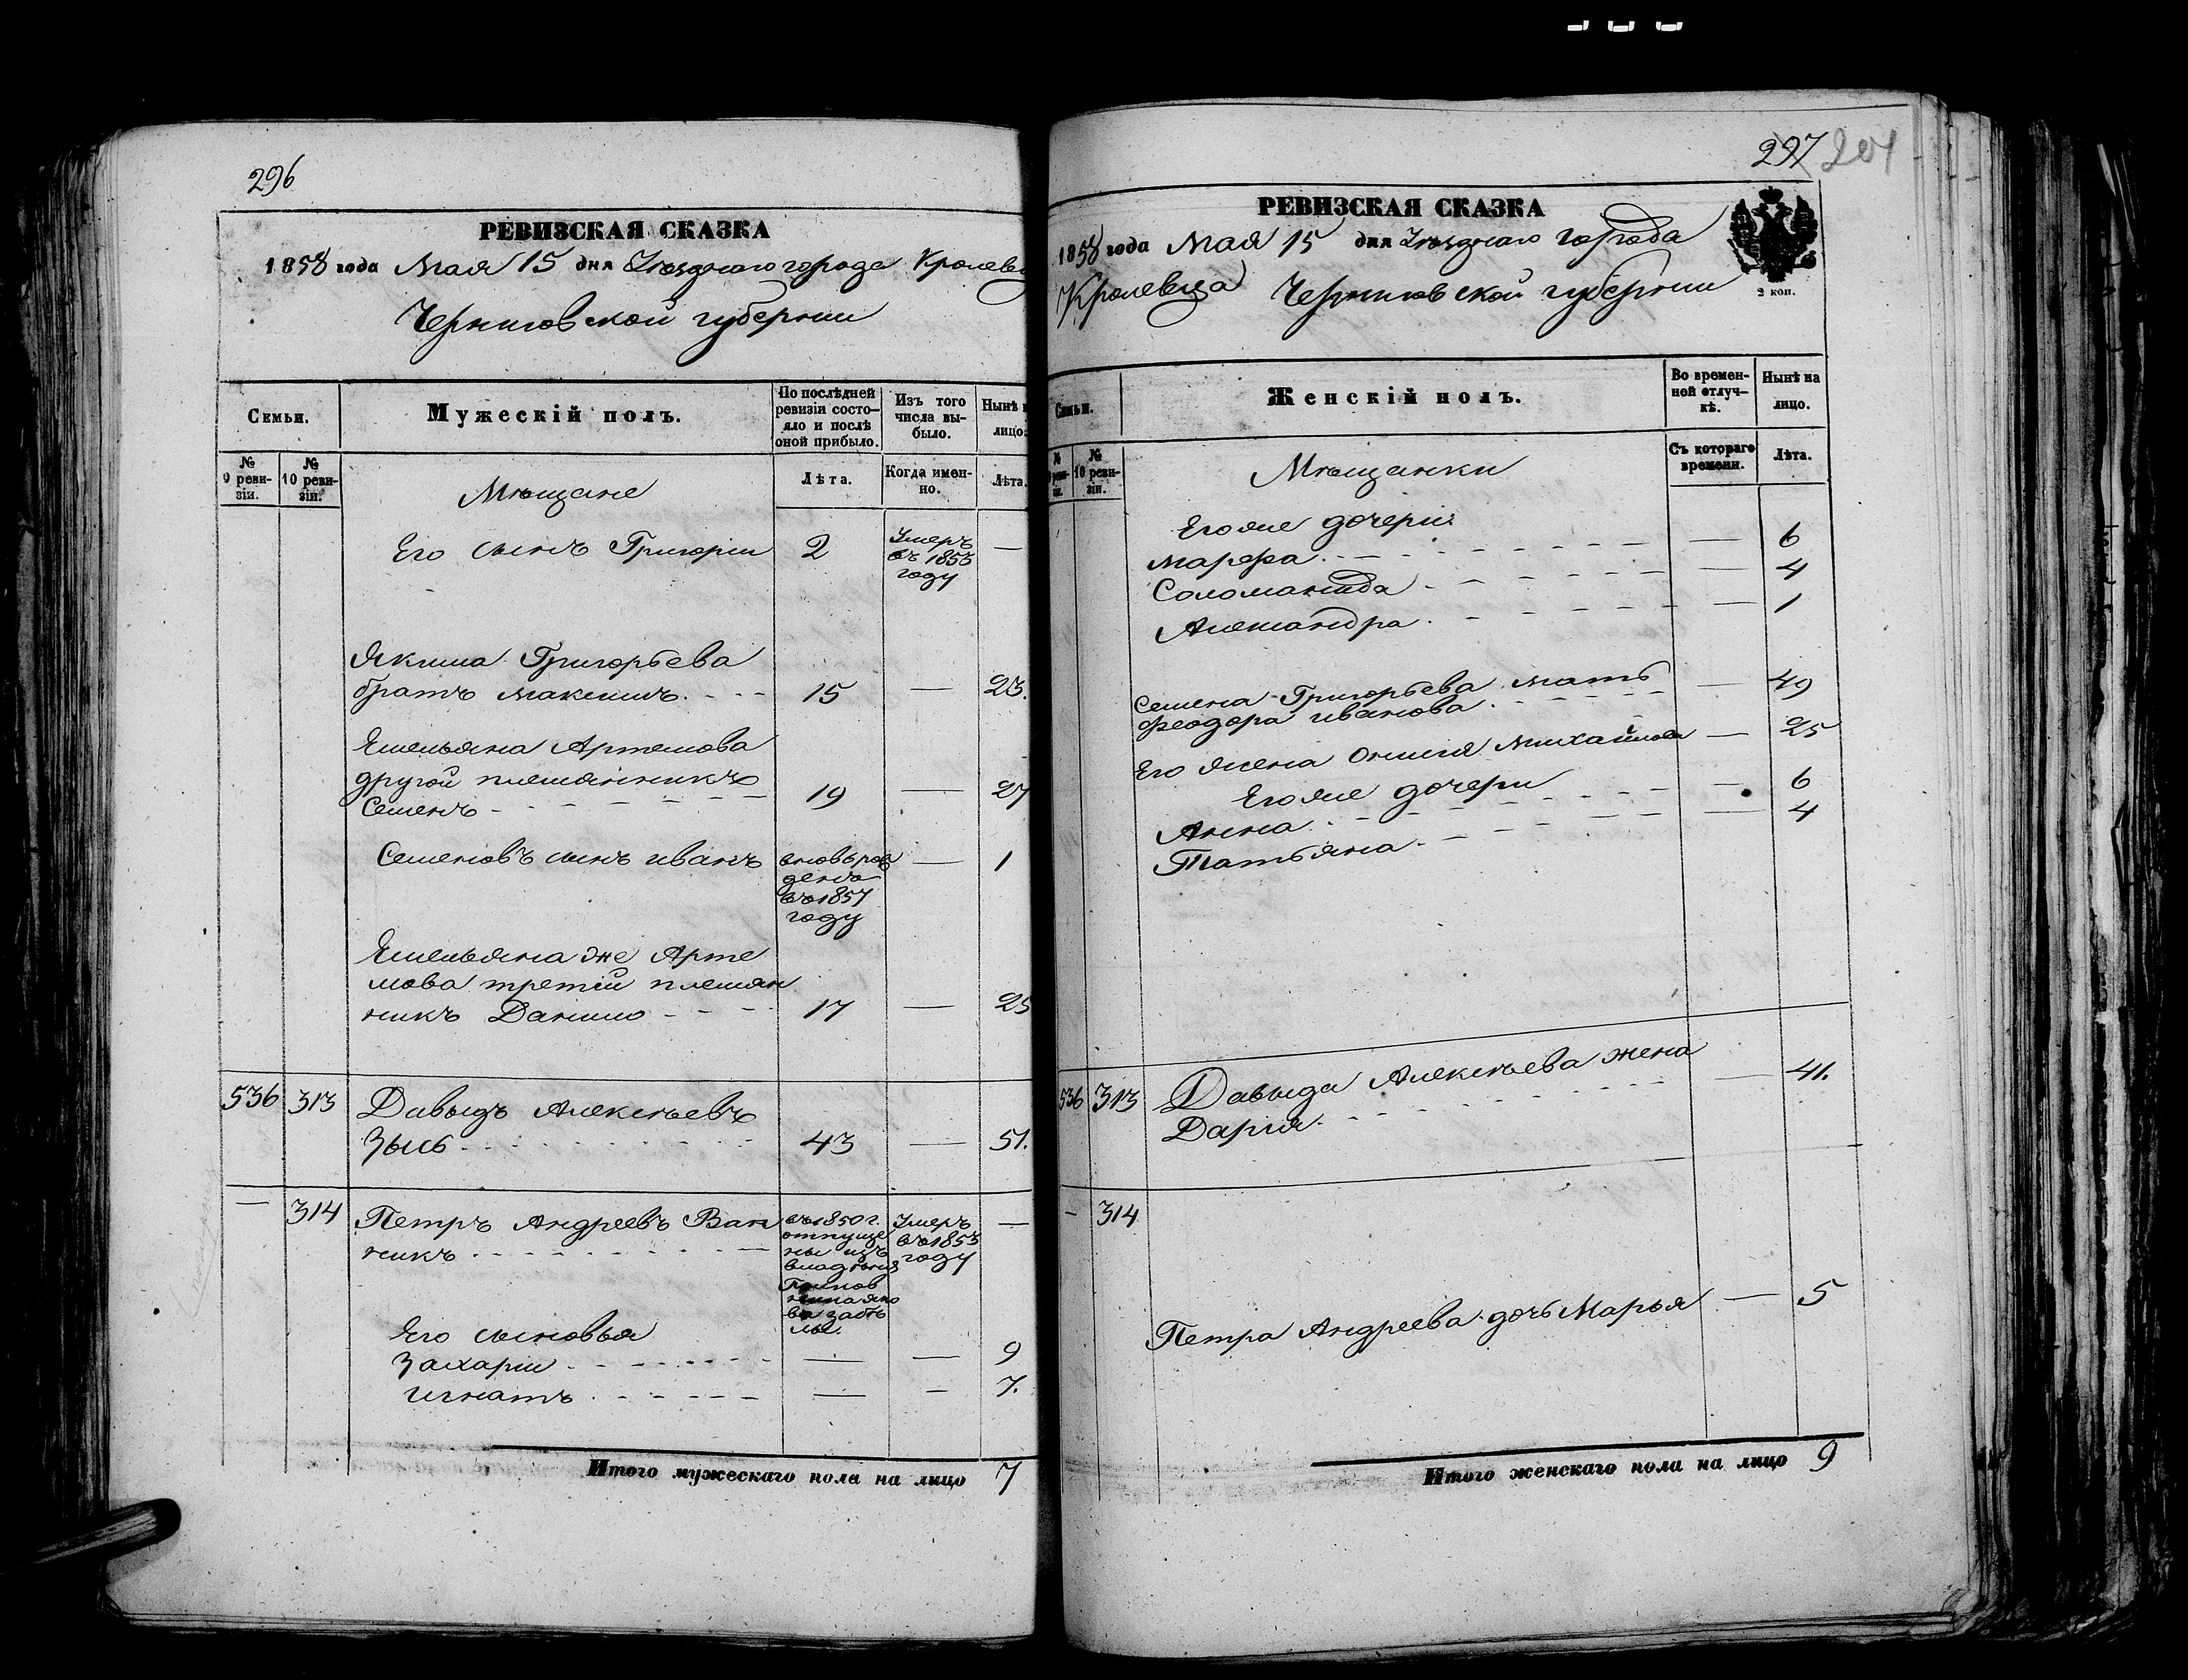 296
РЕВИЗСКАЯ СКАЗКА
1858 года Мая 15 дня Уезднаго города Кролевц
Черниговской губернии
Семьи.
Мужескій полъ.
По послѣдней ревизіи состо-
яло и послѣ оной прибыло.
Изъ того числа вы-
было.
Нынѣ
лицо.
№ 9 реви-
зіи.
№ 10 реви-
зіи.
Мѣщане
Лѣта.
Когда имен-
но.
Лѣта.
Его сынъ Григорій 2 Умеръ —
въ 1853
году
Якима Григорьева
братъ Максимъ 15 — 23.
Емельяна Артемова
другой племянникъ
Семенъ 19 — 27
Семеновъ сынъ Иванъ вновь рож — 1
денъ
въ 1857
году
Емельяна же Арте
мова третій племян
никъ Данило 17 — 25
536 313 Давыдъ Алексѣевъ
Зысь 43 — 51.
— 314 Петръ Андреевъ въ 1850 г. Умеръ —
никъ отпуще въ 1853
ны изъ году
владѣнія
Его сыновья
Захарій — — 9
Игнатъ — — 7.
Итого мужескаго пола на лицо 7
297 204
РЕВИЗСКАЯ СКАЗКА
1858 года Мая 15 дня Уезднаго города
Кролевца Черниговской губерніи
2 коп.
Семьи.
Женскій полъ.
Во времен-
ной отлуч-
кѣ.
Нынѣ на
лицо.
№
реви-
зіи.
№ 10 реви-
зіи.
Мѣщанки
Съ котораго
времени.
Лѣта.
Его же дочери:
Марфа — 6
Соломанида — 4
Александра — 1
Семена Григорьева мать — 49
Феодора Иванова
Его жена Онисия Михайлова — 25
Его же дочери
Анна — 6
Татьяна — 4
536 313 Давыда Алексѣева жена
Дария — 41.
— 314
Петра Андреева дочь Марья — 5
Итого женскаго пола на лицо 9